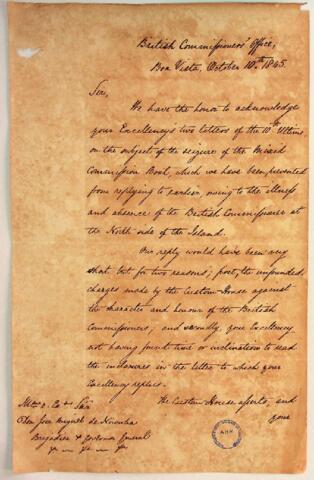 British Commissioners' Office,
Boa Vista, October 10th 1845.
Sir,
We have the honor to acknowledge
your Excellency's two letters of the 10th Ultimo,
on the subject of the seizure of the Mixed
Commission Boat, which we have been prevented
from replying to earlier, owing to the illness
and absence of the British Commissioner at
the North side of the Island.
Our reply would have been very
short but for two reasons; first, the unfounded
charges made by the Custom House against
the character and honour of the British
Commissioners; and secondly, your Excellency
not having found time or inclination to read
the inclosures in the letter to which your
Excellency replies.
The Custom House asserts, and
your
Dom José Miguel de Noronha
Brigadier & Governor General
AHN